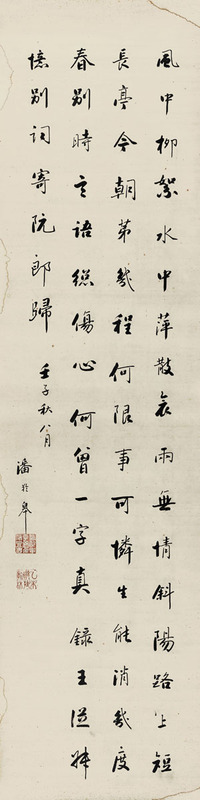 風中柳絮水中萍散兩無情斜陽路上短
長亭今朝第幾程何限事可憐生能消幾度
春別時言語總傷心何曾一字真錄王從叔
憶別詞寄阮郎歸
壬子秋八月
潘齡皋